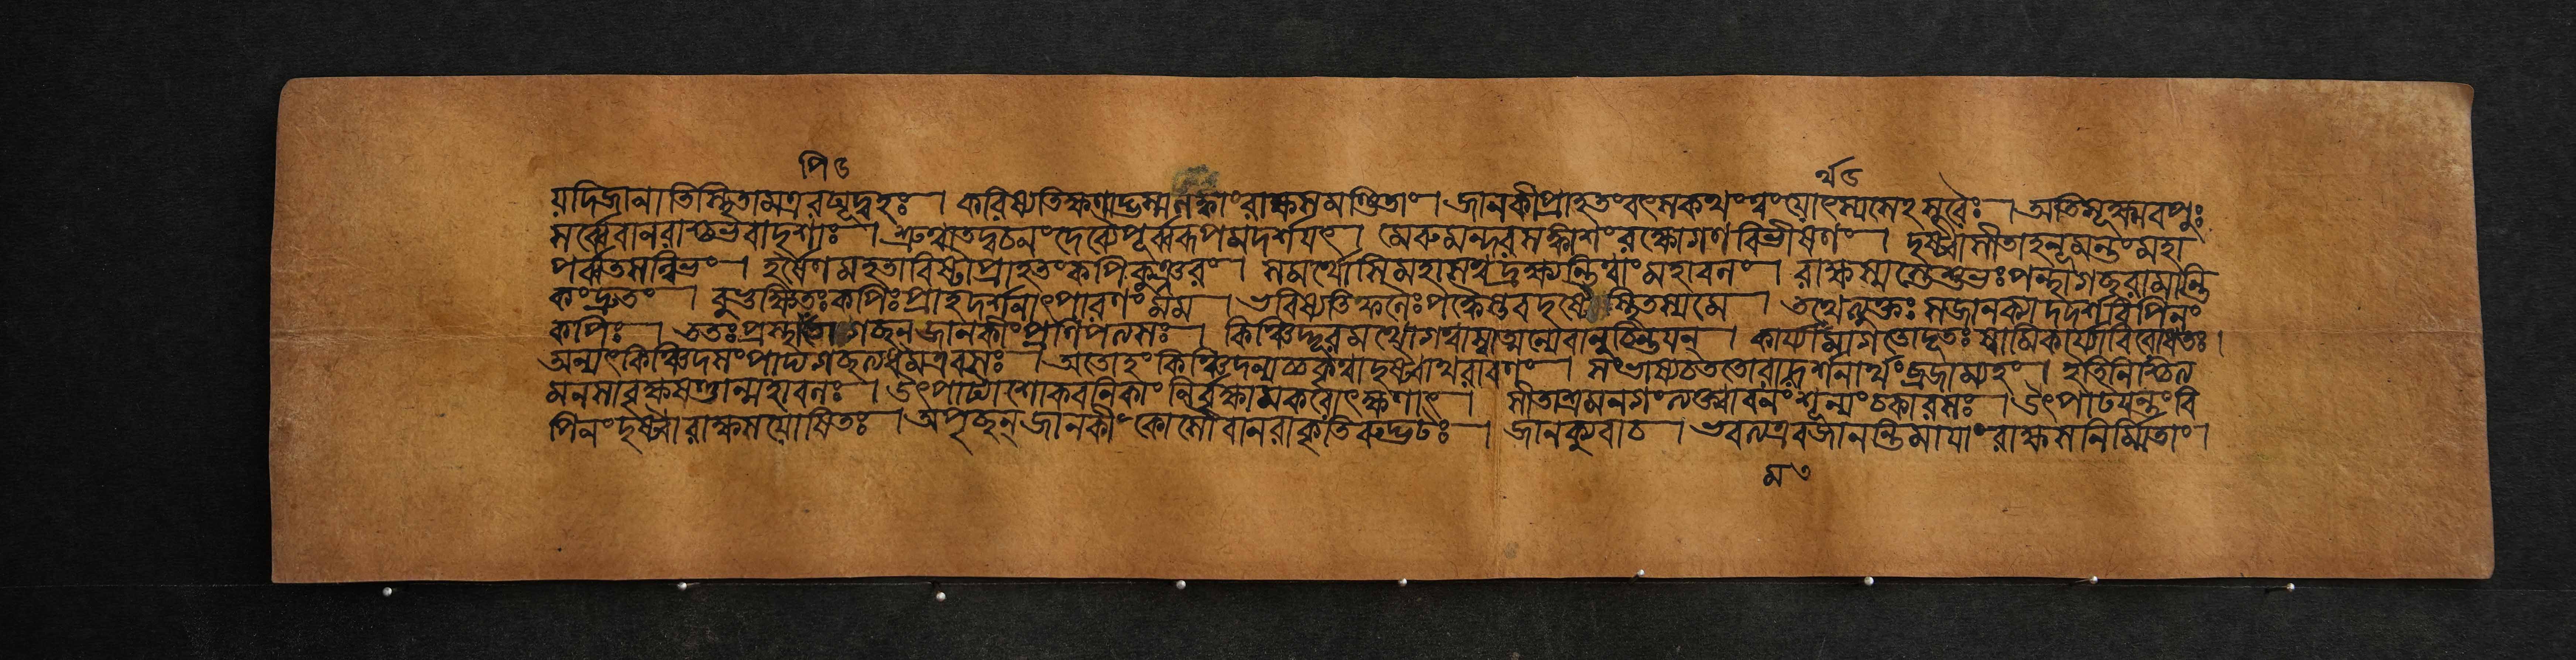 পি ৬ র্থ ৬
যদি জানাতি স্থিতামত্র রঘূদ্বহঃ । করিষ্যতি ক্ষণাদ্ভস্ম লঙ্কাং রাক্ষসমণ্ডিতাং । জানকী প্রাহ তং বৎস কথং ত্বং যোৎস্যসেঽসুরৈঃ । অতিসূক্ষ্মবপুঃ
সর্ব্বে বানরাশ্চ ভবাদৃশাঃ । শ্রুত্বা তদ্বচনং দেব্যৈ পূর্ব্বরূপমদর্শয়ৎ । মেরুমন্দরসঙ্কাশং রক্ষোগণবিভীষণং । দৃষ্ট্বা সীতা হনূমন্তং মহা
পর্ব্বতসন্নিভং । হর্ষেণ মহতাবিষ্টা প্রাহ তং কপিকুঞ্জরং । সমর্থোসি মহাসত্ব দ্রক্ষ্যন্তি ত্বাং মহাবলং । রাক্ষস্যস্তে শুভঃ পন্থা গচ্ছ রামান্তি
কং দ্রুতং । বুভুক্ষিতঃ কপিঃ প্রাহ দর্শনাৎ পারণং মম । ভবিষ্যতি ফলৈঃ পক্বৈস্তব দৃষ্টৌ স্থিতস্য মে । তথেত্যুক্তঃ স জানক্যা দদর্শ বিপিনং
কপিঃ । ততঃ প্রস্থাপিতো গচ্ছন্ জানকীং প্রণিপত্য সঃ । কিঞ্চিদ্দূরমথো গত্বা স্বাত্মন্যেবানুচিন্তয়ন্ । কার্য্যার্থমাগতো দূতঃ স্বামিকার্য্যাবিরোধতঃ ।
অন্যৎ কিঞ্চিদসংপাদ্য গচ্ছত্যধম এব সঃ । অতোহং কিঞ্চিদন্যচ্চ কৃত্বা দৃষ্ট্বাথ রাবণং । সংভাষ্য চ ততো রামদর্শনার্থং ব্রজাম্যহং । ইতি নিশ্চিত্য
মনসা বৃক্ষষণ্ডান্মহাবলঃ । উৎপাট্যাশোকবনিকাং নির্বৃক্ষামকরোৎ ক্ষণাৎ । সীতাশ্রমনগং ত্যক্ত্বা বনং শূন্যং চকার সঃ । উৎপাটয়ন্তং বি
পিনং দৃষ্ট্বা রাক্ষসযোষিতঃ । অপৃচ্ছন্ জানকীং কোসৌ বানরাকৃতিরুদ্ভটঃ । জানক্যুবাচ । ভবত্য এব জানন্তি মায়াং রাক্ষসনির্ম্মিতাং ।
ম ৩